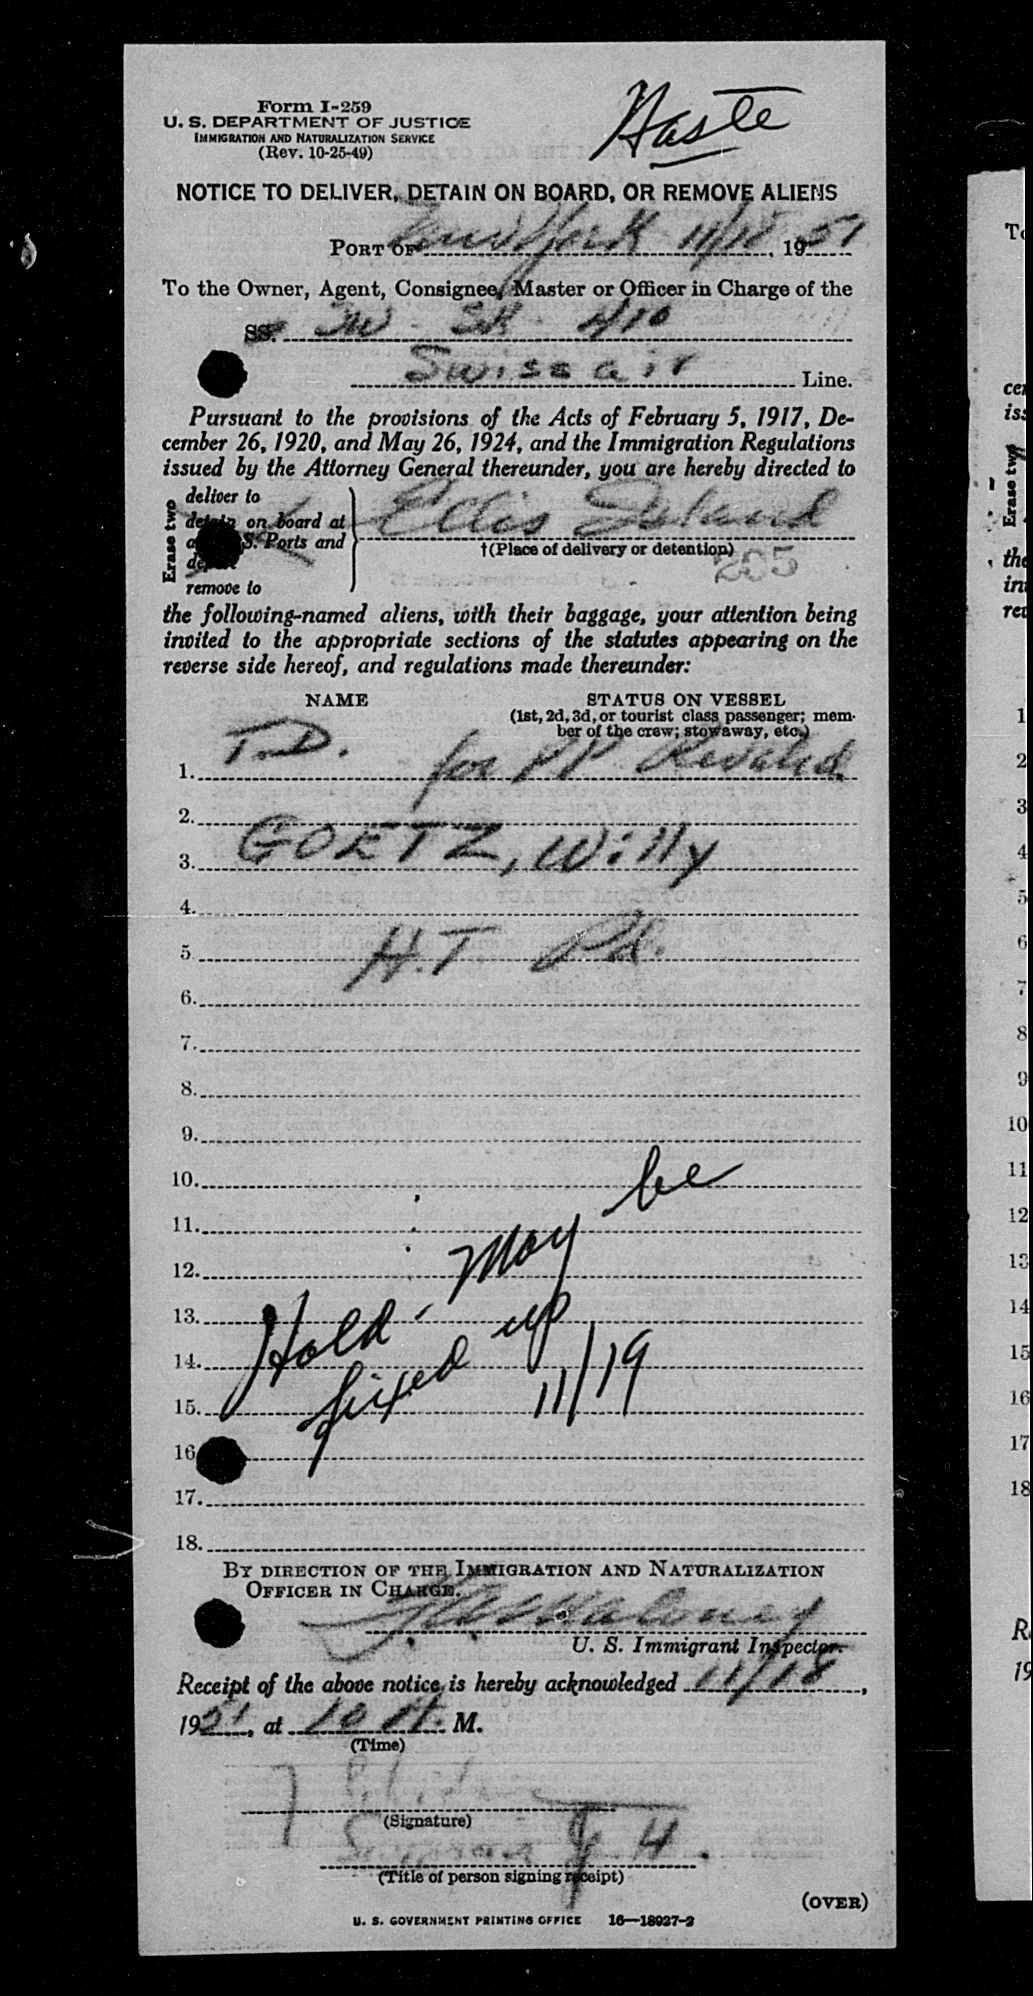 Haste
Form I-259
U. S. DEPARTMENT OF JUSTICE
IMMIGRATION AND NATURALIZATION SERVICE
(Rev. 10-25-49)
NOTICE TO DELIVER, DETAIN ON BOARD, OR REMOVE ALIENS
PORT OF New York 11/18, 1951
To the Owner, Agent, Consignee, Master or Officer in Charge of the
SS. SR 410
Swissair Line.
Pursuant to the provisions of the Acts of February 5, 1917, De-
cember 26, 1920, and May 26, 1924, and the Immigration Regulations
issued by the Attorney General thereunder, you are hereby directed to
Erase two
deliver to
detain on board at
S. Ports and
remove to
Ellis Island
†(Place of delivery or detention)
205
the following-named aliens, with their baggage, your attention being
invited to the appropriate sections of the statutes appearing on the
reverse side hereof, and regulations made thereunder:
NAME STATUS ON VESSEL
(1st, 2d, 3d, or tourist class passenger; mem-
ber of the crew; stowaway, etc.)
1. T.D. for PP
2.
3. GOETZ, Willy
4.
5. H.T.
6.
7.
8.
9.
10.
11.
12.
13.
14.
15.
16
17.
18.
Hold - May be
fixed up
11/19
BY DIRECTION OF THE IMMIGRATION AND NATURALIZATION
OFFICER IN CHARGE.
Maloney
U. S. Immigrant Inspector.
Receipt of the above notice is hereby acknowledged 11/18,
1951, at 10 A. M.
(Time)
(Signature)
(Title of person signing receipt)
(OVER)
U. S. GOVERNMENT PRINTING OFFICE 16—18027-2
Erase two
1
2
3
4
5
6
7
8
9
10
11
12
13
14
15
16
17
18